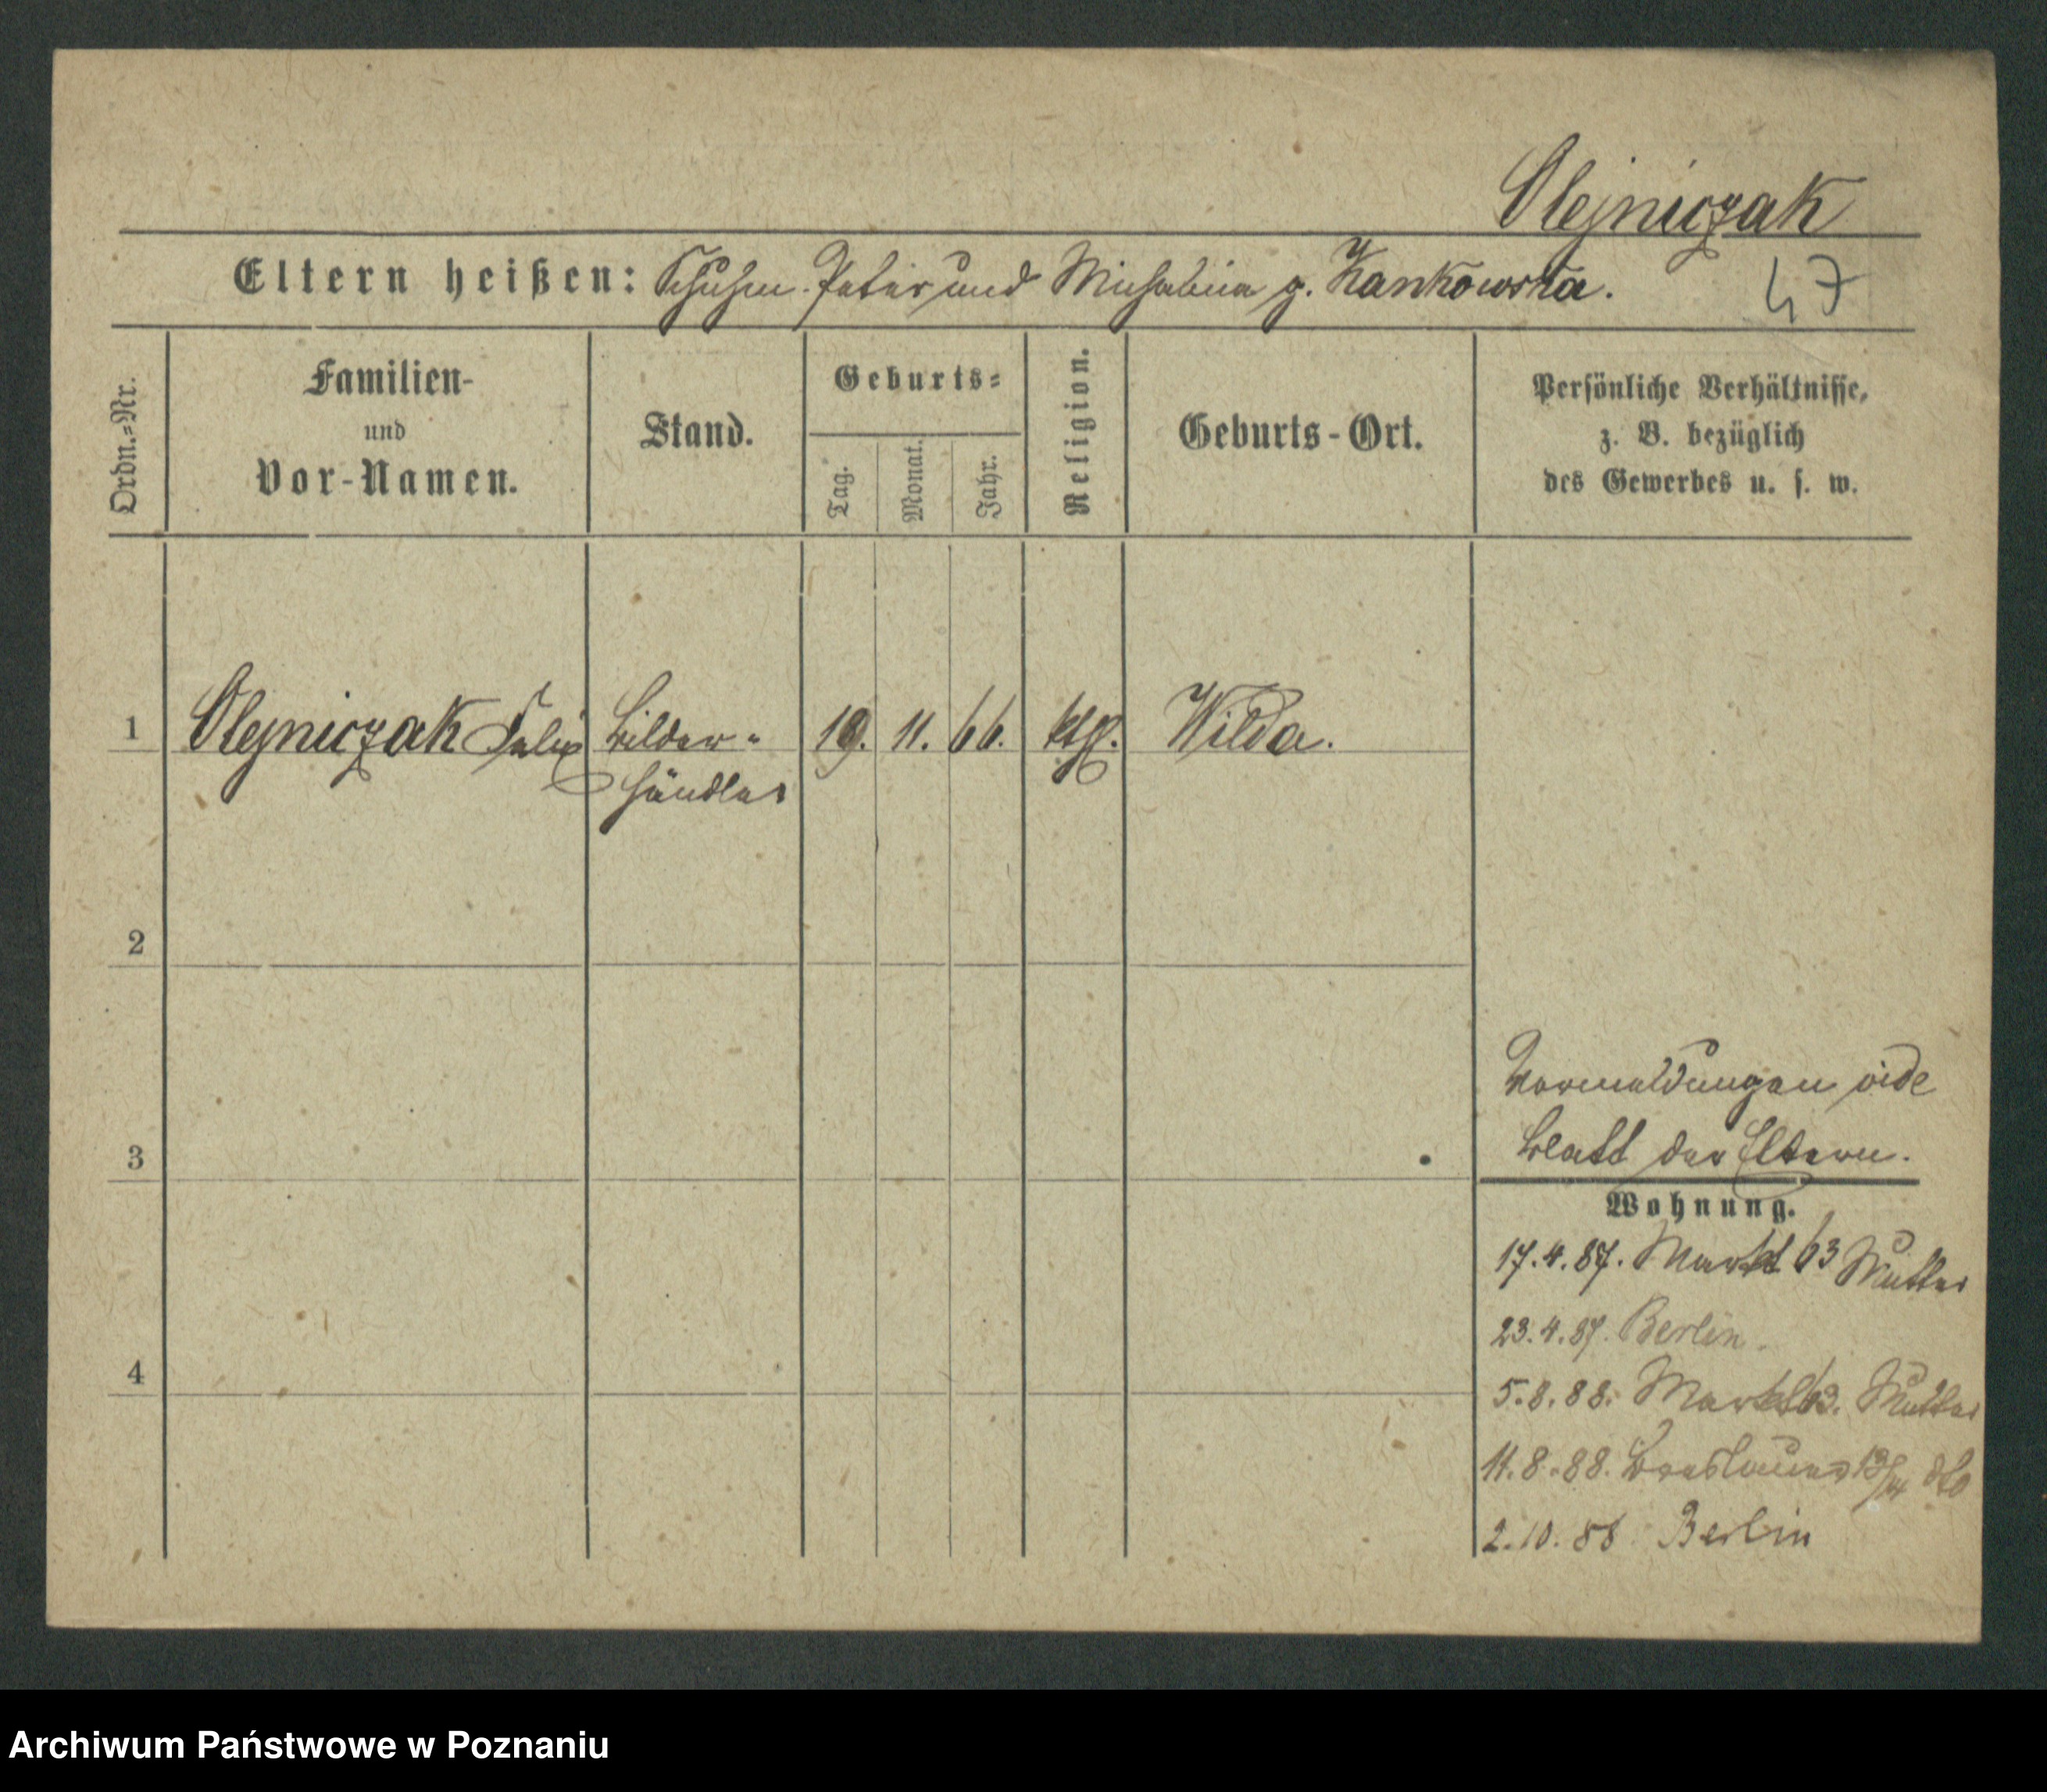 Olejniczak
Eltern heißen: Schuhm. Peter und Michalina g. Kankowska.
47
Ordn.=Nr.
Familien-
und
Vor-Namen.
Stand.
Geburts=
Tag.
Monat.
Jahr.
Religion.
Geburts-Ort.
Persönliche Verhältnisse,
z. B. bezüglich
des Gewerbes u. s. w.
1 Olejniczak Felix Bilder- 19. 11. 66. kth. Wilda.
händler
2
3
4
Vormeldungen vide
Blatt der Eltern.
Wohnung.
17.4.87. Markt 63 Mutter
23.4.87. Berlin.
5.8.88. Markt 63. Mutter
11.8.88. Breslauer 13/14 dto
2.10.88 Berlin
Archiwum Państwowe w Poznaniu